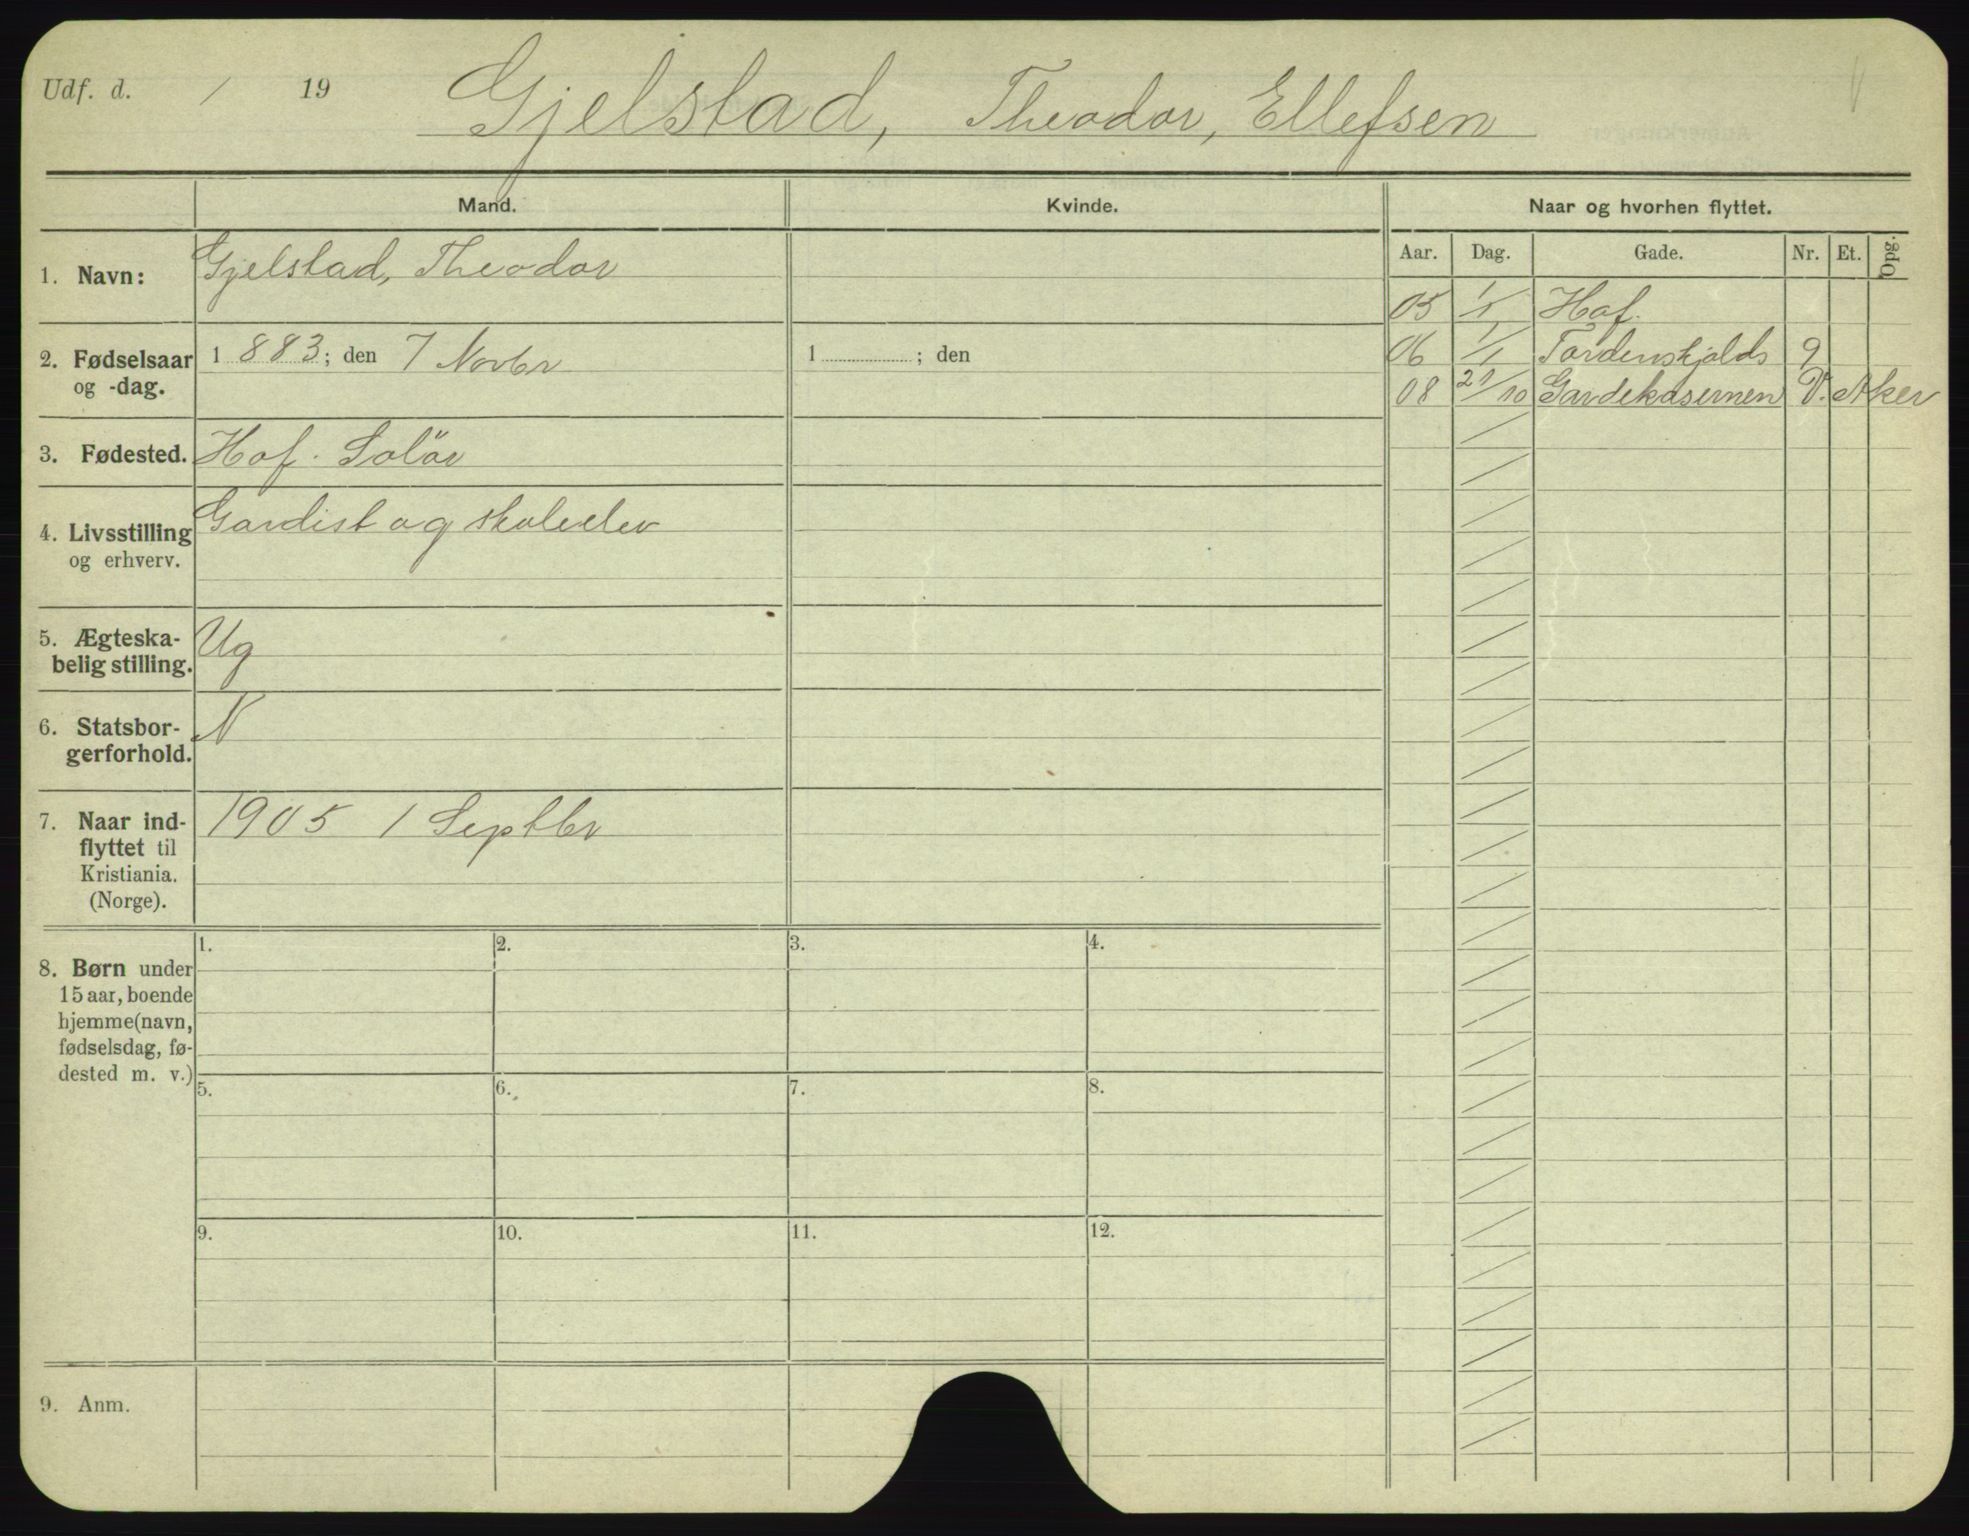 Udf. d. / 19 Gjelstad, Theodor, Ellefsen
Mand. Kvinde. Naar og hvorhen flyttet.
Aar. Dag. Gade. Nr. Et. Opg.
1. Navn: Gjelstad, Theodor
05 1/1 Hof.
06 1/1 Tordenskjolds 9
08 21/10 Gardekasernen V. Aker
2. Fødselsaar og -dag.
1 883; den 7 Novbr
1 ; den
3. Fødested. Hof. Solör
4. Livsstilling og erhverv.
Gardist og skoleelev
5. Ægteska-
belig stilling.
Ug
6. Statsbor-
gerforhold.
N
7. Naar ind-
flyttet til
Kristiania.
(Norge).
1905 1 Septbr
8. Børn under
15 aar, boende
hjemme (navn,
fødselsdag, fø-
dested m. v.)
1. 2. 3. 4.
5. 6. 7. 8.
9. 10. 11. 12.
9. Anm.